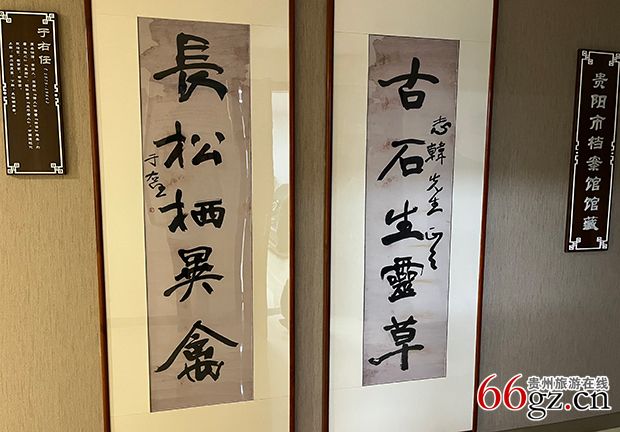 古石生靈草
志韓先生正之
長松栖異禽
于右任
于右任
贵阳市档案馆馆藏
贵州旅游在线
66gz.cn